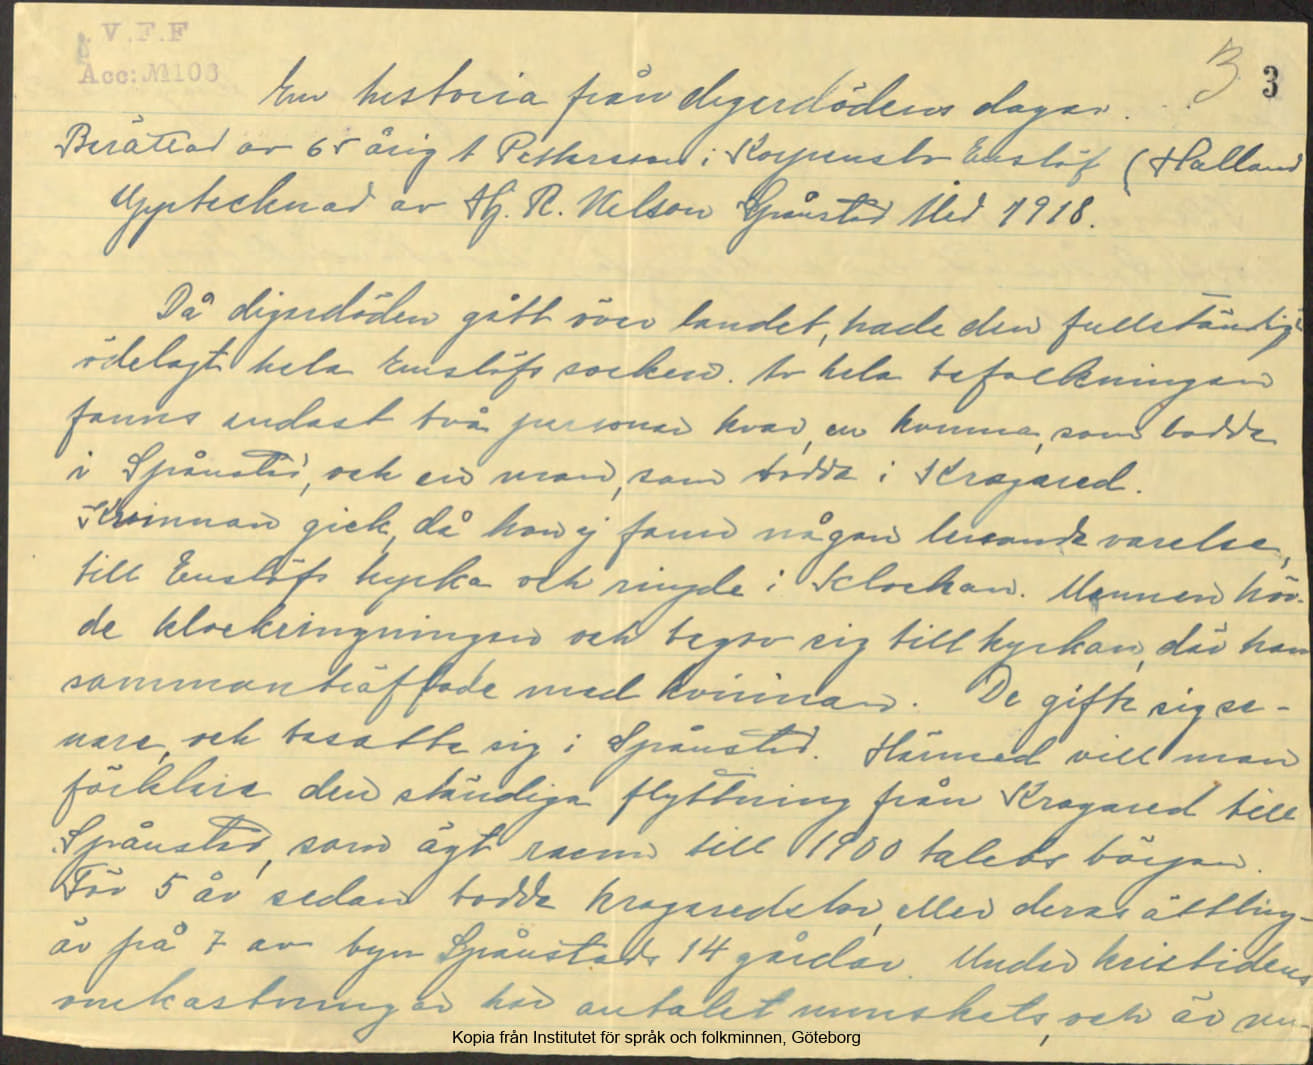 V.F.F
Acc: № 103
3 3
En historia från digerdödens dagar.
Berättad av 65 årig t Pettersson i Korpenstv Enslöf (Halland
Upptecknad av Hj. R. Nelson Spånstad Med 1918.
Då digerdöden gått över landet, hade den fullständigt
ödelagt hela Enslöfs socken. Av hela befolkningen
fanns endast två personer kvar, en kvinna, som bodde
i Spånstad, och en man, som bodde i Kragared.
Kvinnan gick, då hon ej fann någon levande varelse,
till Enslöfs kyrka och ringde i klockan. Mannen hör-
de klockringningen och begav sig till kyrkan, där han
sammanträffade med kvinnan. De gifte sig se-
nare, och bosatte sig i Spånstad. Härmed vill man
förklara den ständiga flyttning från Kragared till
Spånstad, som ägt rum till 1900 talets början.
För 5 år sedan bodde kragaredsbor, eller deras ättling-
ar på 7 av byn Spånstads 14 gårdar. Under kristidens
omkastningar har antalet minskats, och är nu
Kopia från Institutet för språk och folkminnen, Göteborg